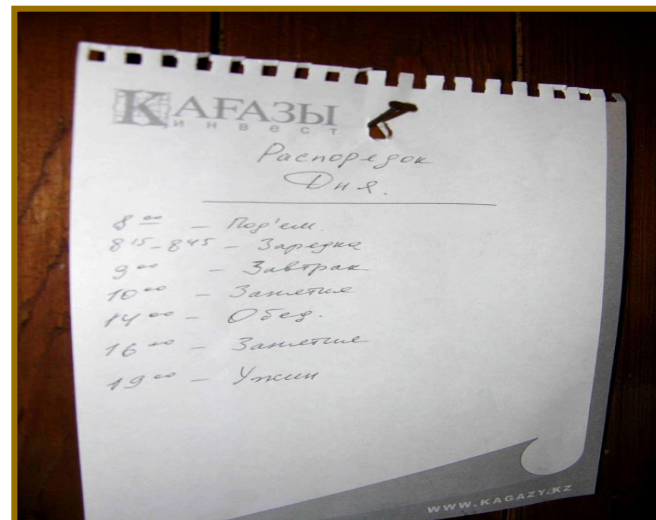 КАҒАЗЫ
ИНВЕСТ
Распорядок
Дня.
8 00 – Под'ем.
8 15-8 45 – Зарядка
9 00 – Завтрак
10 00 – Занятие
14 00 – Обед.
16 00 – Занятие
19 00 – Ужин
WWW.KAGAZY.KZ